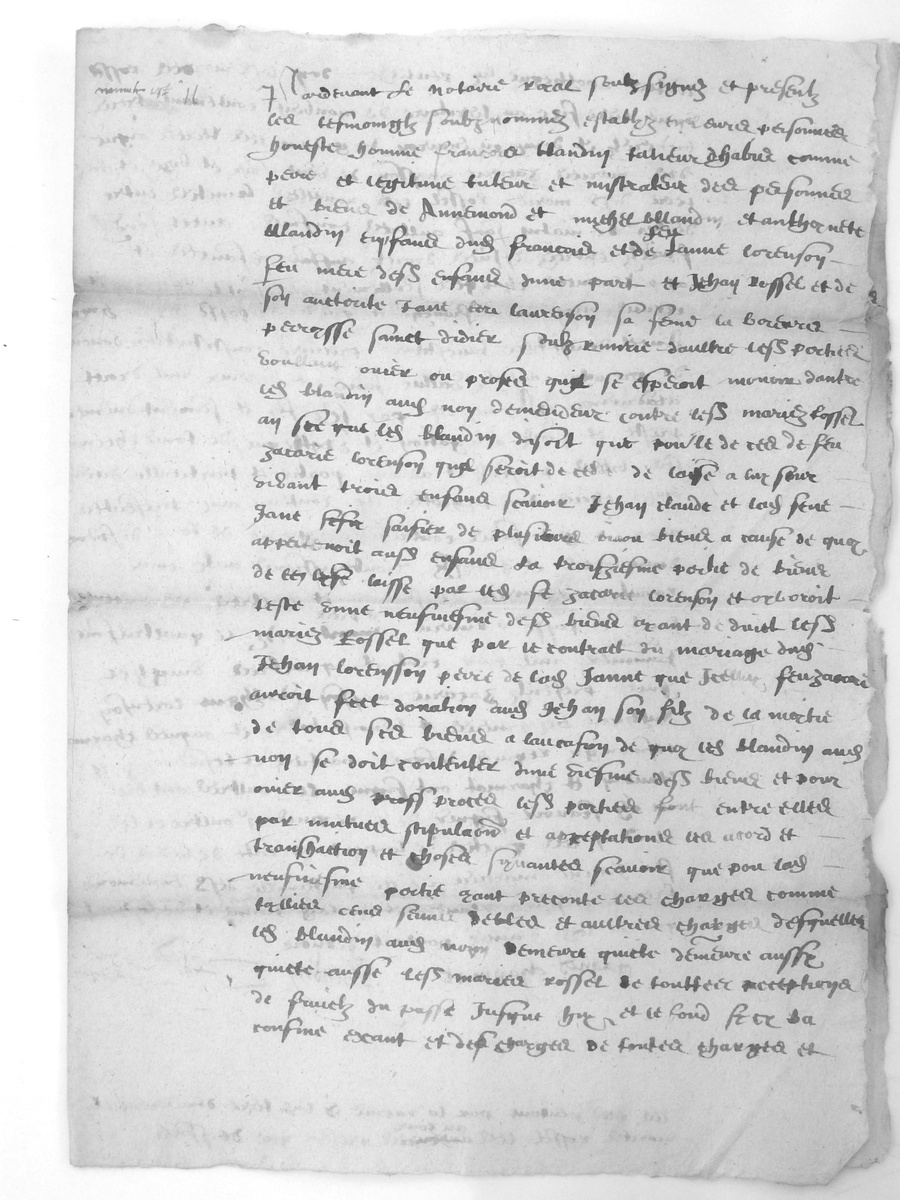 Pardevant le notaire royal soubz signez et presentz
les tesmoingtz soubz nommez establyz en leurs personnes
honeste homme francoys blandin talieur dhabis comme
pere et legitime tuteur et mistrateur des personnes
et biens de Annemond et michel blandin et anthoynete
blandin enffans dud francois et de feu Janne lorenson
feu mere desd enfans dune part et Jehan Rossel et de
son auctorite Jane lorenson sa feme la
perrosse sainct didier daultre lesd parties
voullant ovier ou proses quil se esperoit mouvoir dantre
led blandin aud nom demendeur contre lesd mariez Rossel
an sce que led blandin disoit que pour le de ces de feu
zacarie lorenson quil seroit de cede de laisse a luy seur
vivant trois enfans scavoir Jehan claude et lad feue
Jane saisier de plusieurs biens a cause de quoy
appertenoit ausd enfans la troisziesme partie de biens
de laisse par led fe zacarie lorenson et
reste une neufviesme desd biens ayant de duict lesd
mariez Rossel que par le contract du mariage dud
Jehan lorensson pere de lad Janne que Icelluy feu zacarie
avroit fect donation aud Jehan son filz de la moitie
de tous ses biens a laucasion de quoy led blandin aud
nom se doit contenter dune desd biens et pour
ovier aud proces lesd parties font entre elles
par mutues stipulaon et acceptations les acord et
transaction et choses suyvantes scavoir que pour lad
neufviesme portie ayant preconte les charges comme
taillies cens debtes et aultres charges desquelles
led blandin aud nom demeure quicte demeure aussy
quicte ausse lesd maries rossel de touttes receptions
de fruictz du passe Jusque huy et le fond
confine exant et des charges de toutes charges et